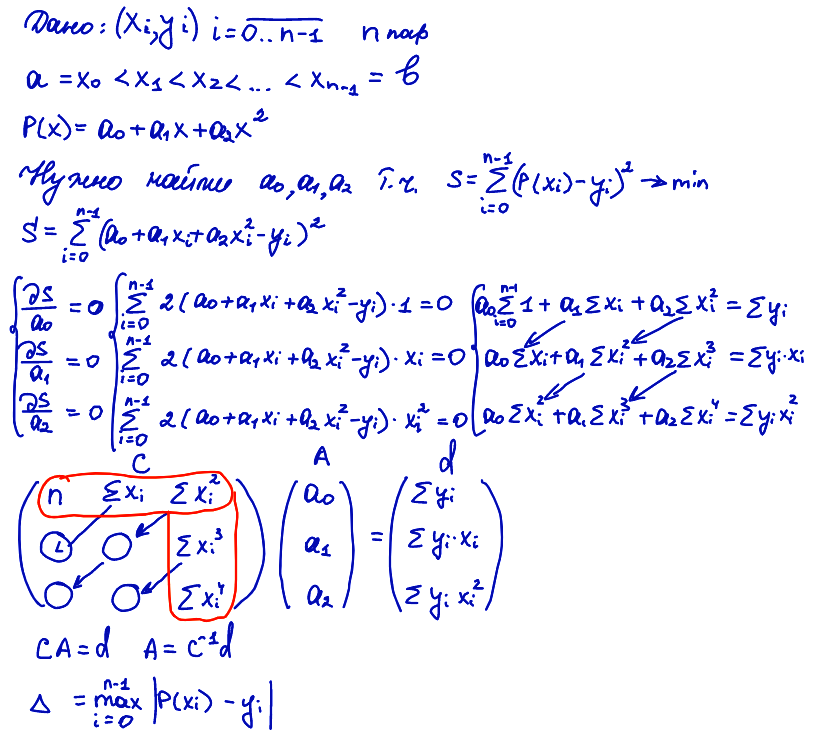 Дано: (xᵢ, yᵢ) i = 0..n-1 n пар
a = x₀ < x₁ < x₂ < ... < xₙ₋₁ = b
P(x) = a₀ + a₁x + a₂x²
Нужно найти a₀, a₁, a₂ т.ч. S = ∑_{i=0}^{n-1} (P(xᵢ) - yᵢ)² → min
S = ∑_{i=0}^{n-1} (a₀ + a₁xᵢ + a₂xᵢ² - yᵢ)²
∂S/a₀ = 0 ∑_{i=0}^{n-1} 2(a₀ + a₁xᵢ + a₂xᵢ² - yᵢ)·1 = 0 a₀∑_{i=0}^{n-1} 1 + a₁∑xᵢ + a₂∑xᵢ² = ∑yᵢ
∂S/a₁ = 0 ∑_{i=0}^{n-1} 2(a₀ + a₁xᵢ + a₂xᵢ² - yᵢ)·xᵢ = 0 a₀∑xᵢ + a₁∑xᵢ² + a₂∑xᵢ³ = ∑yᵢ·xᵢ
∂S/a₂ = 0 ∑_{i=0}^{n-1} 2(a₀ + a₁xᵢ + a₂xᵢ² - yᵢ)·xᵢ² = 0 a₀∑xᵢ² + a₁∑xᵢ³ + a₂∑xᵢ⁴ = ∑yᵢxᵢ²
C A d
n ∑xᵢ ∑xᵢ² a₀ ∑yᵢ
∑xᵢ³ a₁ = ∑yᵢ·xᵢ
∑xᵢ⁴ a₂ ∑yᵢxᵢ²
CA = d A = C⁻¹d
Δ = max_{i=0}^{n-1} |P(xᵢ) - yᵢ|